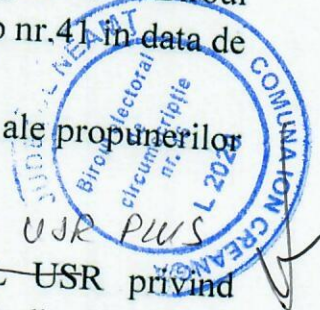 nr.41 in data de
ale propunerilor
USR PLUS
USR privind
JUDEȚUL NEAMȚ
COMUNA ION CREANGĂ
Biroul electoral
circumscripție
nr.
L 202